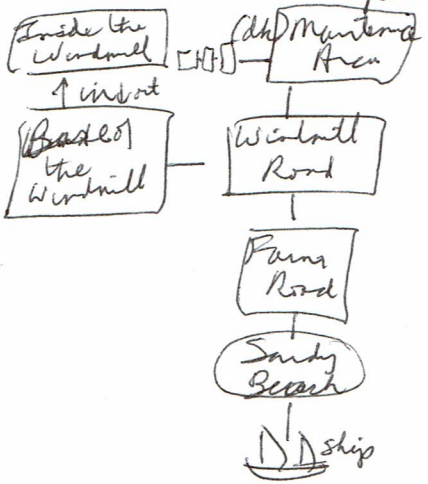 Inside the
Windmill
(dk)
Area
in/out
Base of
the
Windmill
Windmill
Road
Farm
Road
Sandy
Beach
ship